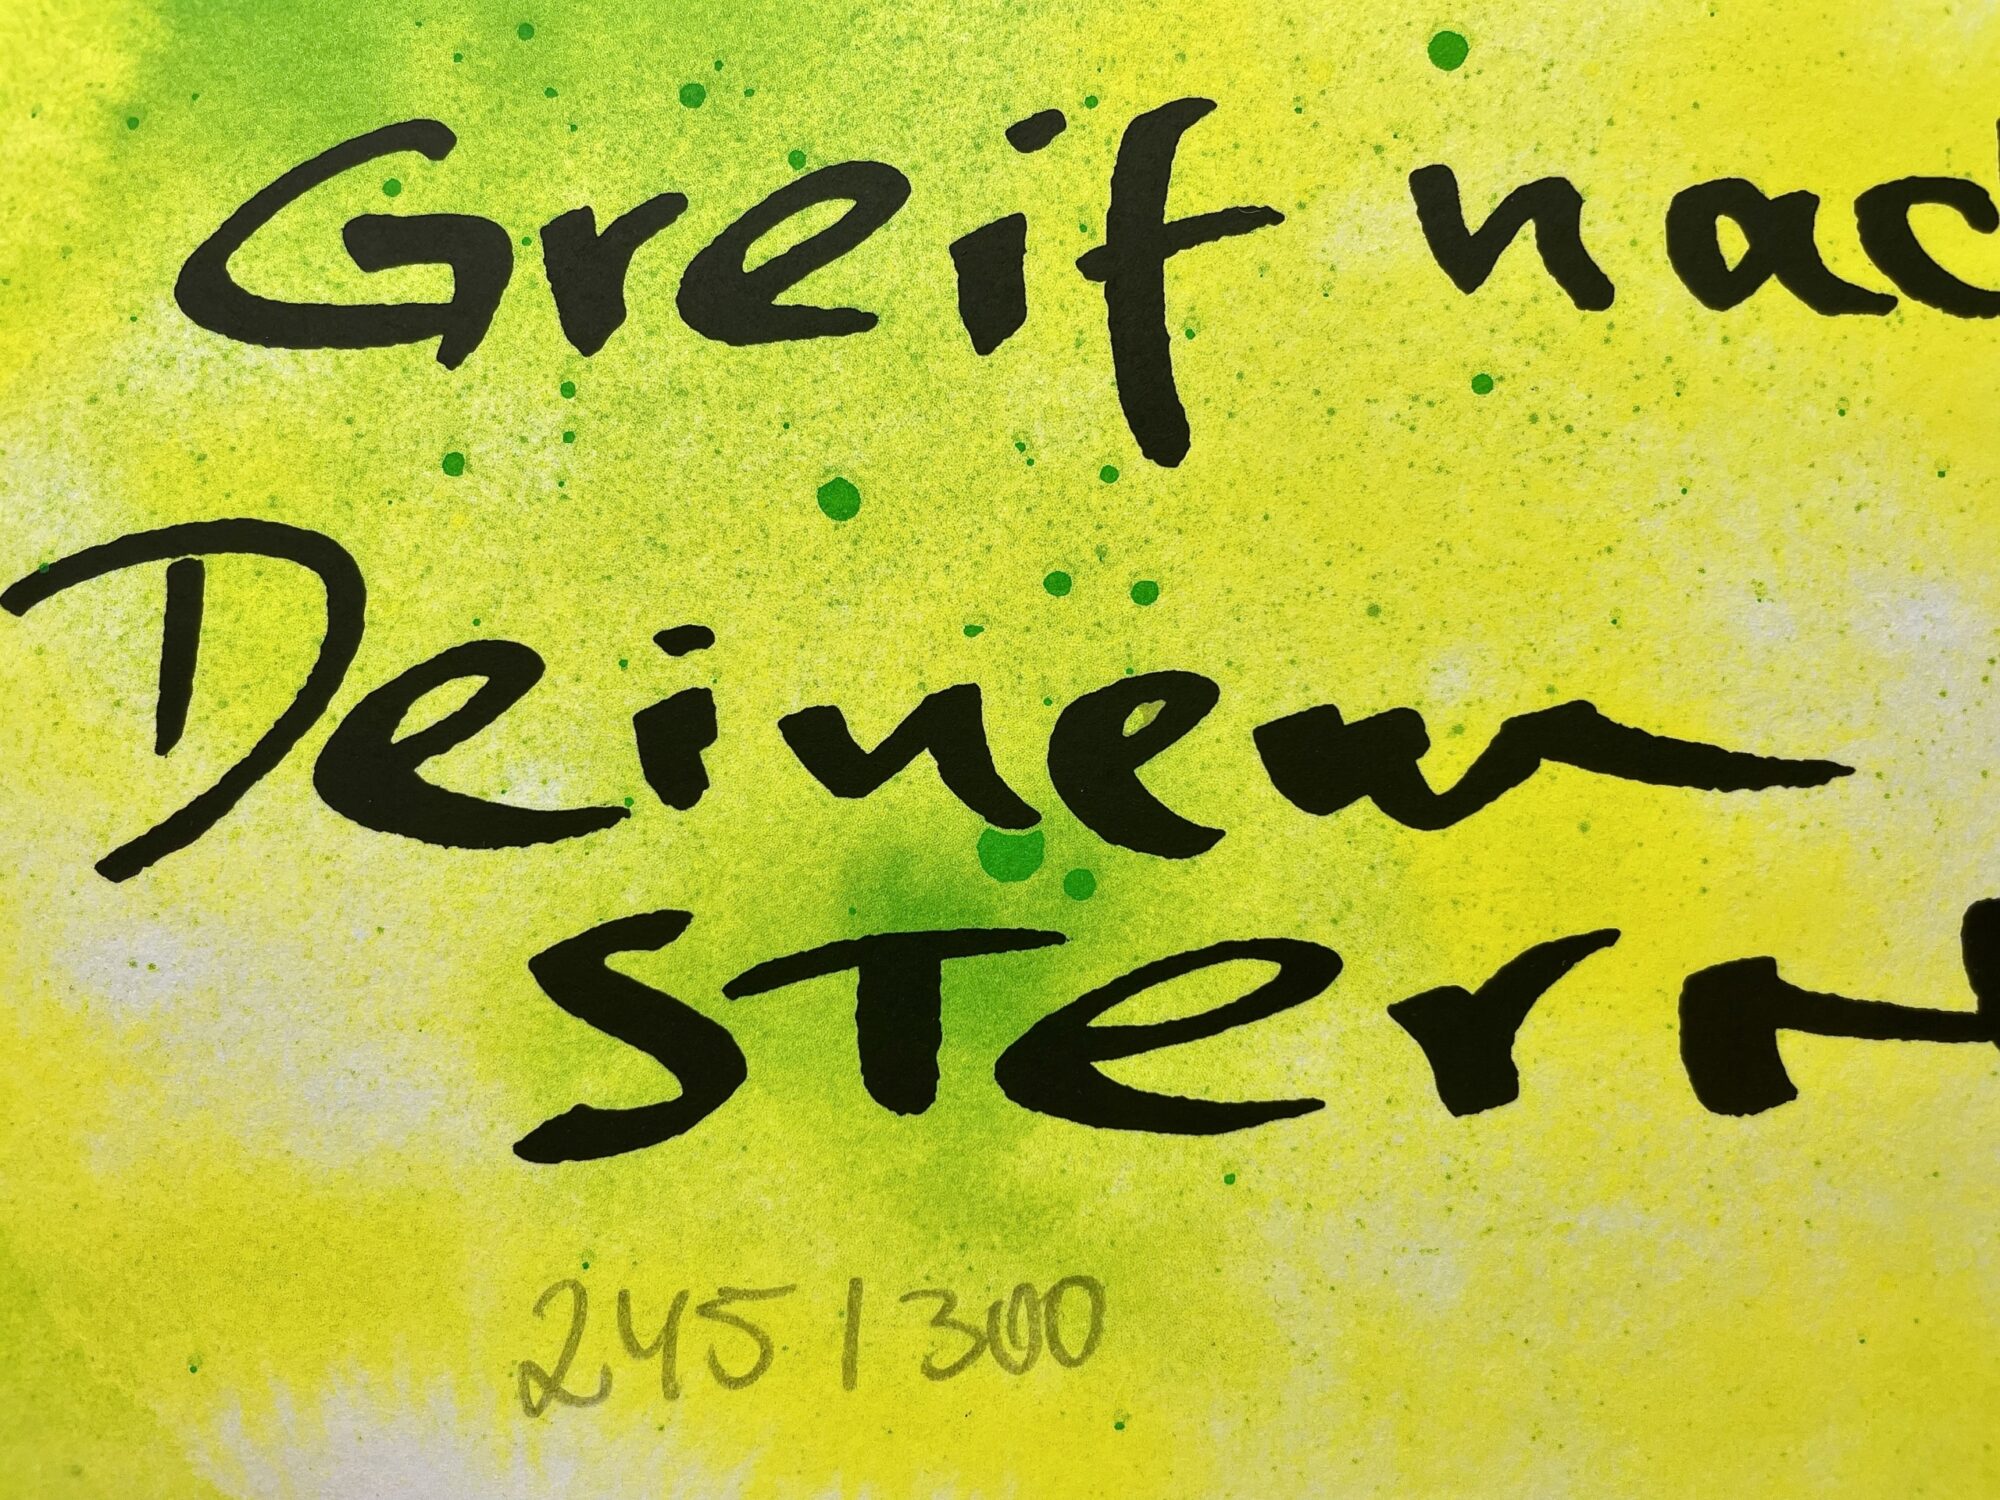 Greif nach
Deinem
STern
245/300